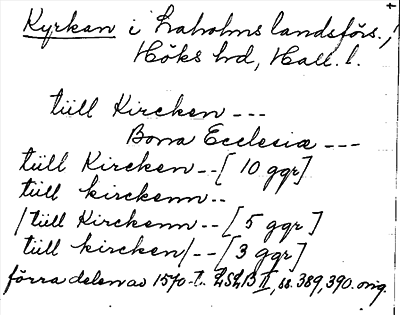 Kyrkan i Laholms landsförs.,
Höks hd, Hall. l.
tüll Kircken ---
Bona Ecclesiæ ---
tüll Kircken -- [10 ggr]
tüll kirckenn --
/tüll Kirckenn -- [5 ggr]
tüll kircken/ -- [3 ggr]
förra delen av 1570-t. ss. 389, 390. orig.